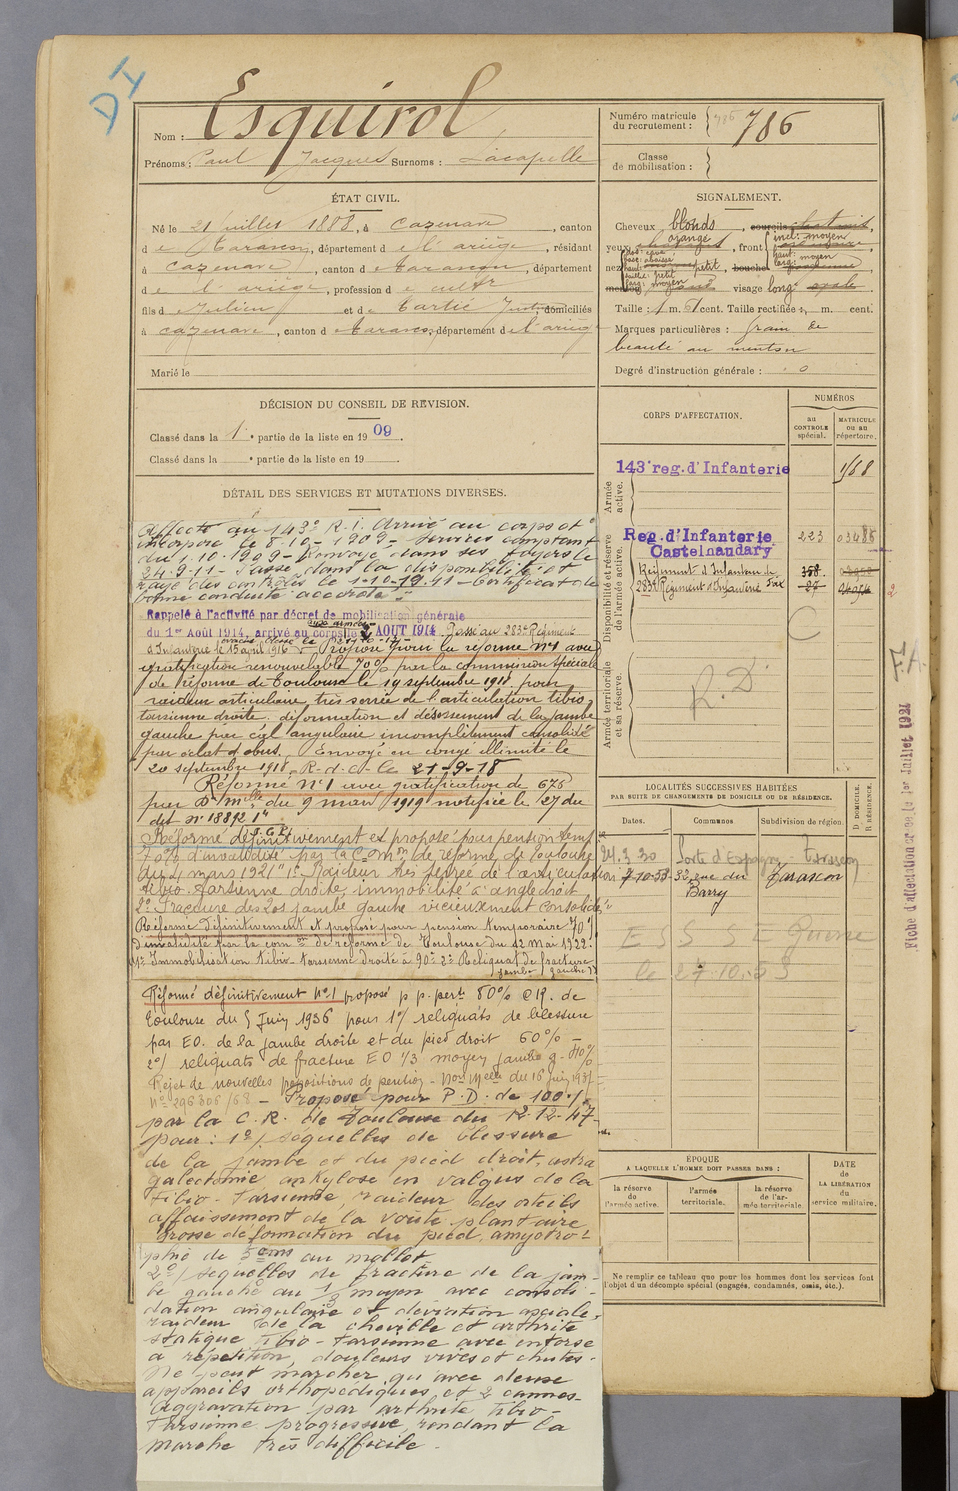 DI
Nom : Esquirol
Prénoms : Paul Jacques Surnoms : Lacapelle
Numéro matricule du recrutement : 786 786
Classe de mobilisation :
ÉTAT CIVIL.
Né le 21 juillet 1888, à Cazenave, canton
de Tarascon, département de l'ariège, résidant
à Cazenave, canton de Tarascon, département
de l'ariège, profession de cultr
fils de Julien et de domiciliés
à Cazenave, canton de Tarascon, département de l'ariège
Marié le
SIGNALEMENT.
Cheveux blonds, sourcils châtains
yeux orangé, front incl: moyen
haut: larg: moyen
nez dos: cave base: abaissé haut: petit, bouche
saillie: petit larg: moyen
menton visage long ovale.
Taille : 1 m. 61 cent. Taille rectifiée : 1 m. cent.
Marques particulières : grain de
beauté au menton
Degré d'instruction générale : 0
DÉCISION DU CONSEIL DE RÉVISION.
Classé dans la 1e partie de la liste en 1909.
Classé dans la e partie de la liste en 19
DÉTAIL DES SERVICES ET MUTATIONS DIVERSES.
Affecté au 143e R.I. Arrivé au corps et
incorporé le 8-10-1909 - Services comptant
du 1.10.1909 - Renvoyé dans ses foyers le
24-9-11 - Passé dans la disponibilité et
rayé des contrôles le 1-10-1911 - Certificat de
bonne conduite accordé -
Rappelé à l'activité par décret de mobilisation générale
du 1er Août 1914, arrivé au corps le 4 AOUT 1914. Passé au 283e Régiment
aux armées
d'Infanterie le 15 avril 1916 - Proposé pour la réforme N°1 avec
gratification renouvelable 70% par la commission spéciale
de réforme de Toulouse le 19 septembre 1918 pour
raideur articulaire très serrée de l'articulation tibio
tarsienne droite, déformation et désossement de la jambe
gauche par cal angulaire incomplètement consolidé
par éclat d'obus. Envoyé en congé illimité le
20 septembre 1918. R.d.C. le 21-9-18
Réformé N°1 avec gratification de 675
par Dn Mlle du 9 mars 1919 notifiée le 27 du
dit N° 18892 1"
Réformé définitivement et proposé pour pension temp
70% d'invalidité par la Comm. de réforme de Toulouse
du 4 mars 1921 "1° Raideur très serrée de l'articulation
tibio-tarsienne droite, immobilité à angle droit
2° Fracture des 2 os jambe gauche vicieusement consolidée"
Réformé définitivement et proposé pour pension temporaire 70%
d'invalidité par la com on de réforme de Toulouse du 12 Mai 1922.
"1° Immobilisation tibio-tarsienne droite à 90° 2° Reliquat de fracture
jambe gauche"
Réformé définitivement n°1 proposé p p. pert 80% C.R. de
Toulouse du 5 Juin 1936 pour 1°/ reliquats de blessure
par EO. de la jambe droite et du pied droit 60% -
2°/ reliquats de fracture EO 1/3 moyen jambe g. 40%
Rejet de nouvelles propositions de pension - Don Mlle du 16 juin 1937
N° 296806/68 - Proposé pour P.D. de 100%
par la C.R. de Toulouse du 12-12-47
pour : 1°/ Séquelles de blessure
de la jambe et du pied droit, astra
galectomie, ankylose en valgus de la
tibio-tarsienne, raideur des orteils
affaissement de la voûte plantaire
grosse déformation du pied, amyotro-
phie de 5 cms au mollet
2°/ Séquelles de fracture de la jam-
be gauche au 1/3 moyen avec consoli-
dation angulaire et déviation axiale,
raideur de la cheville et arthrite
statique tibio-tarsienne avec entorse
à répétition, douleurs vives et chutes.
Ne peut marcher qu'avec deux
appareils orthopédiques et 2 cannes.
Aggravation par arthrite tibio-
tarsienne progressive rendant la
marche très difficile.
CORPS D'AFFECTATION.
NUMÉROS
au CONTROLE spécial.
MATRICULE ou au répertoire.
Armée active.
143e reg. d'Infanterie 168
Disponibilité et réserve de l'armée active.
Reg. d'Infanterie Castelnaudary 223 03486
Régiment d'Infanterie de 358
283e Régiment d'Infanterie 27
C
Armée territoriale et sa réserve.
R.D.
F.A.
Fiche d'affectation créée le 1er Juillet 1921
LOCALITÉS SUCCESSIVES HABITÉES
PAR SUITE DE CHANGEMENTS DE DOMICILE OU DE RÉSIDENCE.
Dates. Communes Subdivision de région. D. DOMICILE. R. RÉSIDENCE.
24.3.30 Porte d'Espagne - Tarascon
7-10-53 32 rue du Barry Tarascon
Guerre
le 27.10.53
ÉPOQUE
A LAQUELLE L'HOMME DOIT PASSER DANS :
la réserve de l'armée active.
l'armée territoriale.
la réserve de l'armée territoriale.
DATE de LA LIBÉRATION du service militaire.
Ne remplir ce tableau que pour les hommes dont les services font
l'objet d'un décompte spécial (engagés, condamnés, omis, etc.).